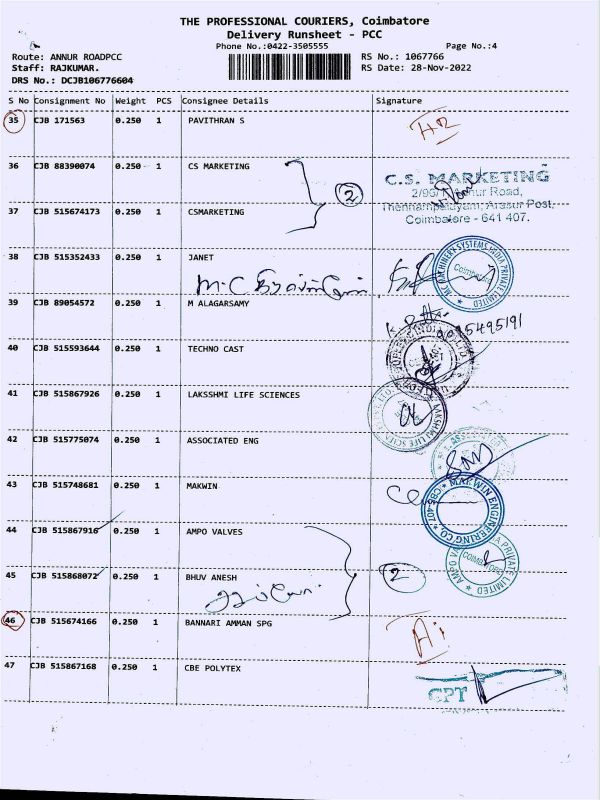 THE PROFESSIONAL COURIERS, Coimbatore
Delivery Runsheet - PCC
Phone No.:0422-3505555 Page No.:4
Route: ANNUR ROADPCC RS No.: 1067766
Staff: RAJKUMAR. RS Date: 28-Nov-2022
DRS No.: DCJB106776604
S No Consignment No Weight PCS Consignee Details Signature
35 CJB 171563 0.250 1 PAVITHRAN S
36 CJB 88390074 0.250 1 CS MARKETING
C.S. MARKETING
2
37 CJB 515674173 0.250 1 CSMARKETING
Arasur Post,
Coimbatore - 641 407.
38 CJB 515352433 0.250 1 JANET
39 CJB 89054572 0.250 1 M ALAGARSAMY
40 CJB 515593644 0.250 1 TECHNO CAST
41 CJB 515867926 0.250 1 LAKSSHMI LIFE SCIENCES
42 CJB 515775074 0.250 1 ASSOCIATED ENG
43 CJB 515748681 0.250 1 MAKWIN
MAKWIN ENGINEERING CO.
CBE-407
44 CJB 515867916 0.250 1 AMPO VALVES
45 CJB 515868072 0.250 1 BHUV ANESH
2
46 CJB 515674166 0.250 1 BANNARI AMMAN SPG
47 CJB 515867168 0.250 1 CBE POLYTEX
CPT